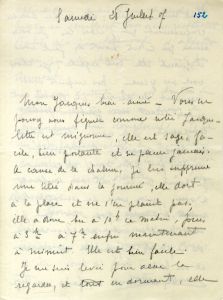 Samedi 28 Juillet 07 152
Mon Jacques bien aimé – Vous ne
pouvez vous figurer comme notre Jacque-
lette est mignonne, elle est sage, fa-
cile, bien portante et ne pleure jamais.
A cause de la chaleur, je lui supprime
une tétée dans la journée, elle dort
à la place et ne s'en plaint pas,
elle a donc bu à 10h ce matin, puis
à 3h à 7h enfin maintenant
à minuit. Elle est bien facile.
Je me suis levée pour
regarder, et tout en dormant, elle